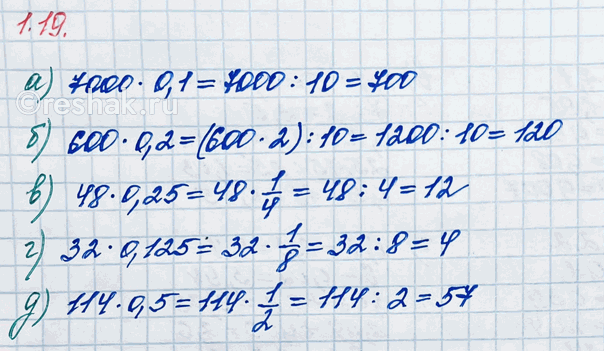 1.19.
а) 7000 · 0,1 = 7000 : 10 = 700
©reshak.ru
б) 600 · 0,2 = (600 · 2) : 10 = 1200 : 10 = 120
в) 48 · 0,25 = 48 · 1/4 = 48 : 4 = 12
г) 32 · 0,125 = 32 · 1/8 = 32 : 8 = 4
д) 114 · 0,5 = 114 · 1/2 = 114 : 2 = 57